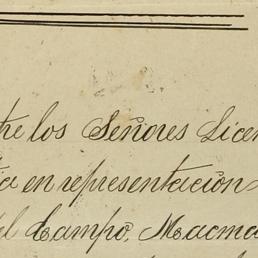 tre los Señores Licen
ia en representacion
el Campo, Macma